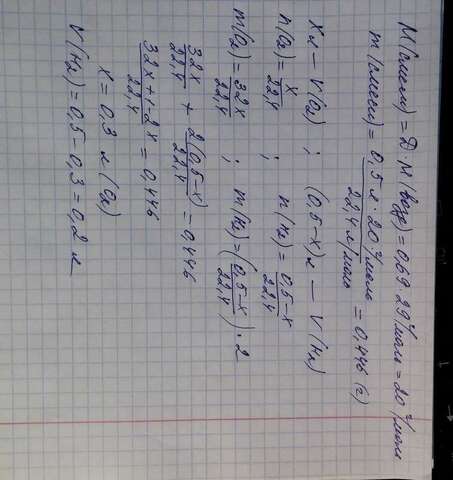 M(смеси) = D·M(возд) = 0,69·29 г/моль = 20 г/моль
m(смеси) = 0,5 л · 20 г/моль / 22,4 л/моль = 0,446 (г)
X л — V(O₂) ; (0,5-x) л — V(H₂)
n(O₂) = x/22,4 ; n(H₂) = 0,5-x/22,4
m(O₂) = 32x/22,4 ; m(H₂) = (0,5-x/22,4)·2
32x/22,4 + 2(0,5-x)/22,4 = 0,446
32x+1-2x/22,4 = 0,446
x = 0,3 л (O₂)
V(H₂) = 0,5-0,3 = 0,2 л